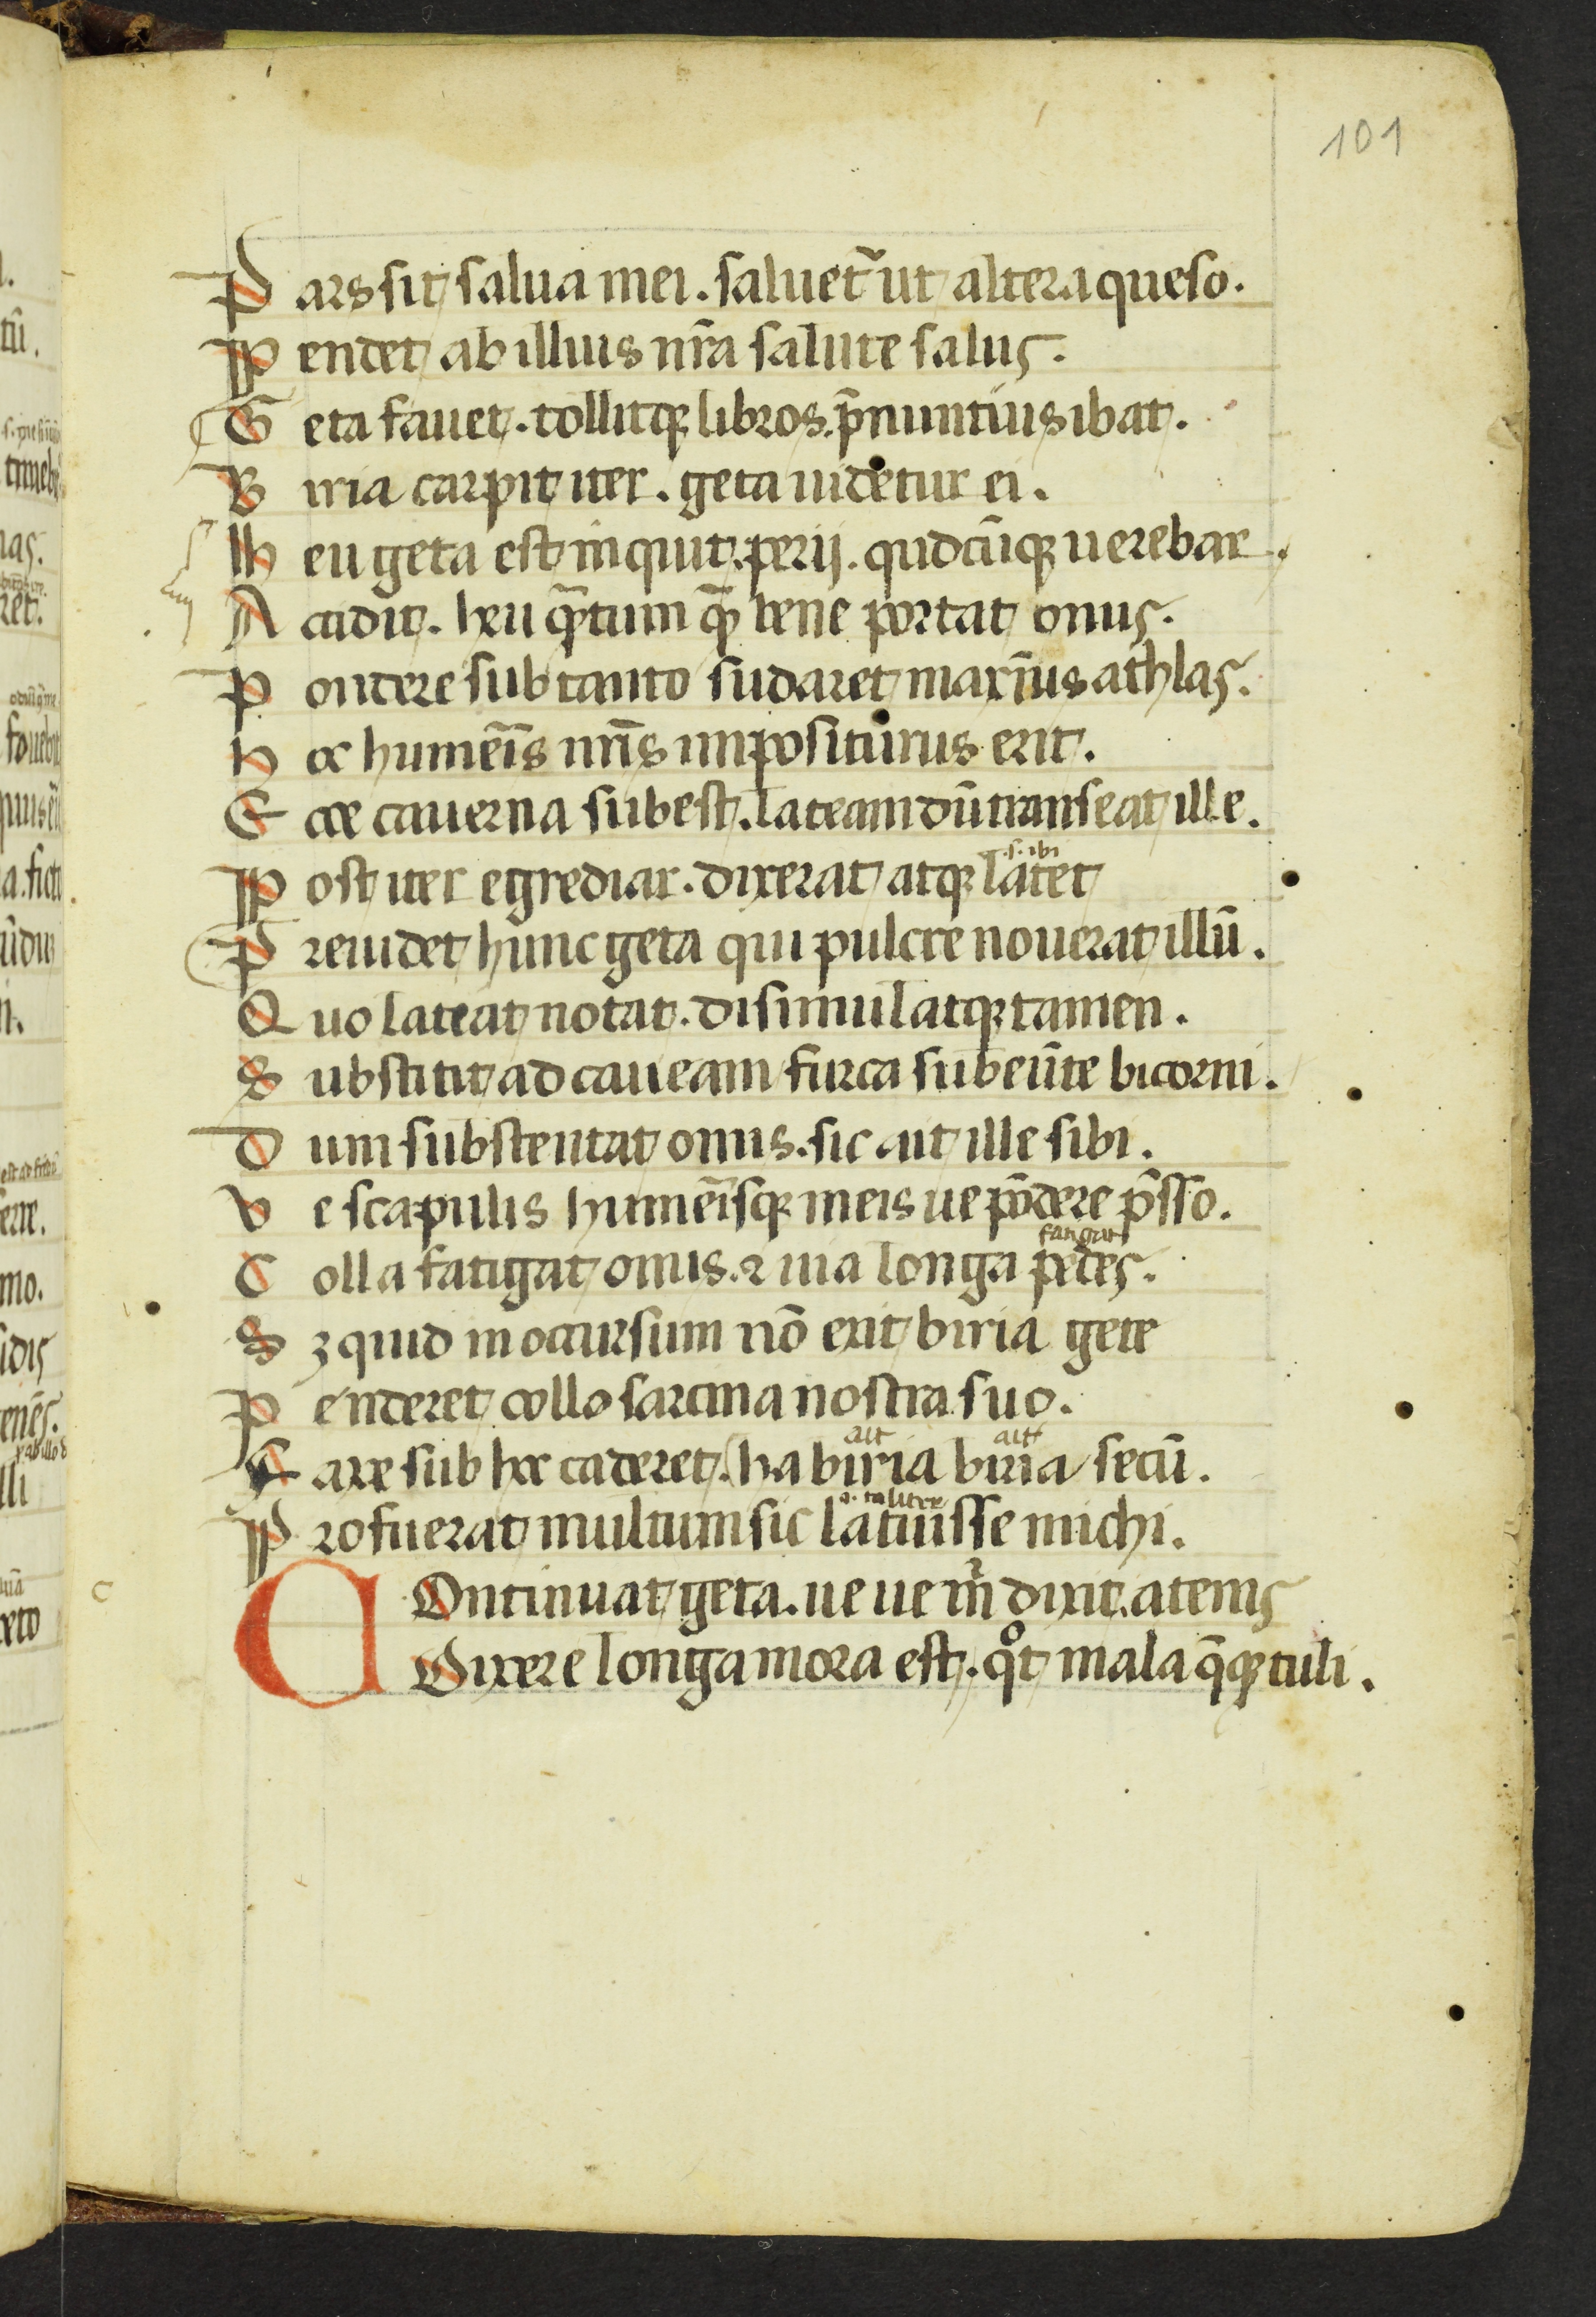 101
Pars sit salua mei. saluet᷑ ut altera queso.
Pendet ab illius nr̄a salute salus.
Geta fauet. tollitqꝫ libros. p̄nuntius ibat.
Biria carpit iter. geta uidetur ei.
Heu geta est inquit. perij. quidcūqꝫ uerebar.
Accidit. heu qͣ̄tum qͣ̄ bene portat onus.
Pondere sub tanto sudaret maxīus athlas.
Hoc humeīs nr̄is impositurus erit.
Ecce cauerna subest. lateam dū transeat ille.
.s. ibi
Post iter egrediar. dixerat atqꝫ latet
Preuidet hunc geta qui pulcre nouerat illū.
Quo lateat notat. disimulatqꝫ tamen.
Substitit ad caueam furca subeūte bicorni.
Dum substentat onus. sic ait ille sibi.
Ve scapulis humeīsqꝫ meis ue pōdere p̄sso.
fatigat
Colla fatigat onus. ⁊ uia longa pedes.
Sꝫ quid in occursum nō exit biria gete
Penderet collo sarcina nostra suo.
ait ait
Face sub hec caderet. ha biria biria secū.
.s. taliter
Profuerat multum sic latuisse michi.
COntinuat geta. ue ue m̄ dixit. atenis
Dixere longa mora est. qͦt mala qͣ̄qꝫ tuli.